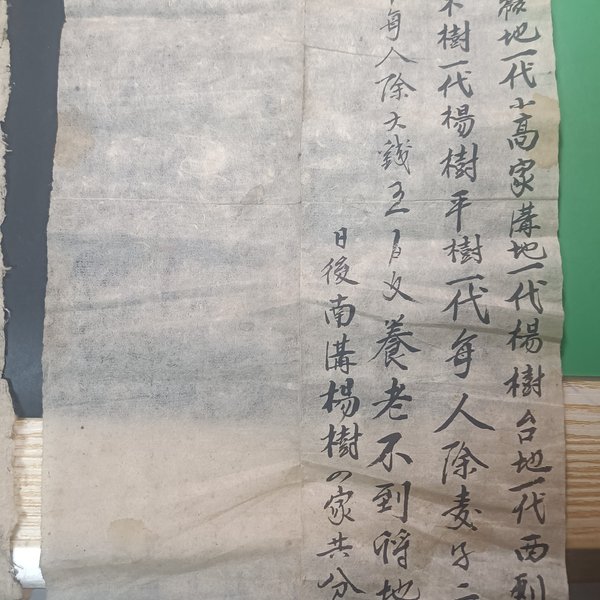 地一代小高家溝地一代楊樹台地一代西到
樹一代楊樹平樹一代每人除麦子二
每人除大錢五百文養老不到將地
日後南溝楊樹四家共分